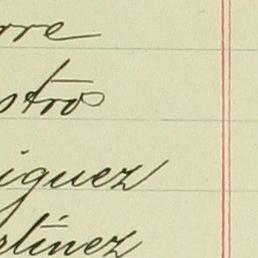 rre
stros
iguez
rtínez